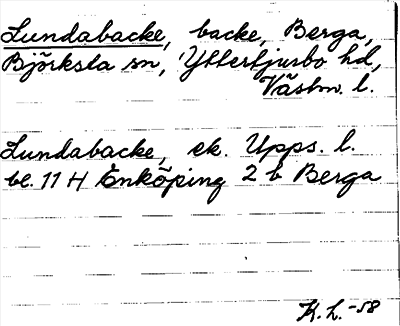 Lundabacke, backe, Berga,
Björksta sn, Yttertjurbo hd,
Västm. l.
Lundabacke, ek. Upps. l.
bl. 11 H Enköping 2 b Berga
K. L. -58